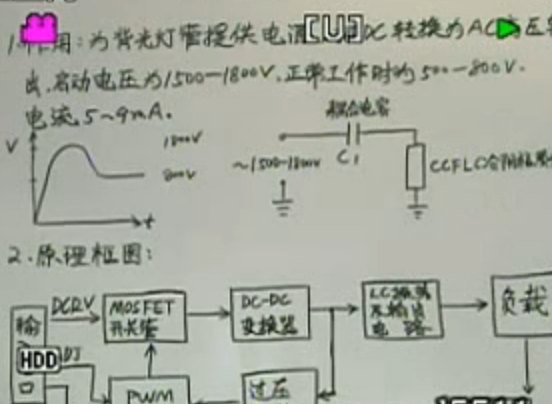 1.作用：为背光灯管提供电流 DC转换为AC 高压
出，启动电压为1500-1800V，正常工作时为500-800V。
电流5~9mA。
V
1800V
800V
t
耦合电容
~1500-1800V
C1
CCFL
2.原理框图：
输
口
DCRV
MOSFET
开关管
DC-DC
变换器
LC振荡
及输出
电路
负载
HDD
PWM
过压